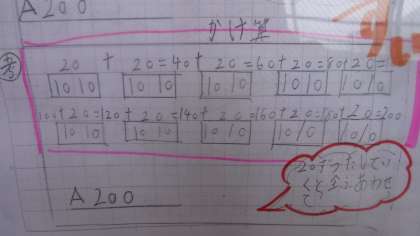 A 200
かけ算
考
20 + 20=40+ 20 =60+20=80+20=
10 10 10 10 10 10 10 10 10 10
100+20=120+ 20 =140+ 20 =160+20=180+20=200
10 10 10 10 10 10 10 10 10 10
20ずつたしてい
くと全ぶあわせ
て
A 200